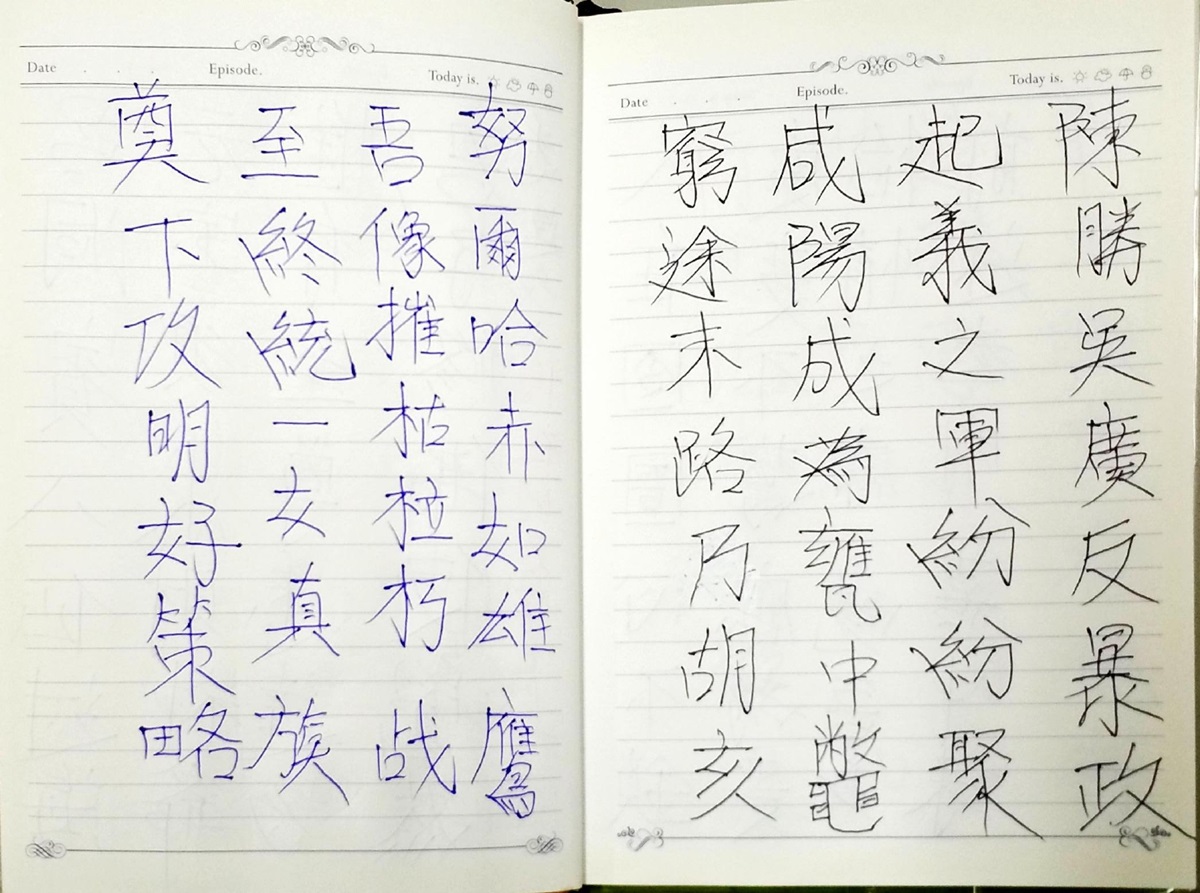 Date . . . Episode. Today is.
陳勝吳廣反暴政
起義之軍紛紛聚
咸陽成為甕中鼈
窮途末路乃胡亥
Date . . . Episode. Today is.
努爾哈赤如雄鷹
吾像摧枯柆朽战
至終統一女真族
奠下攻明好策略